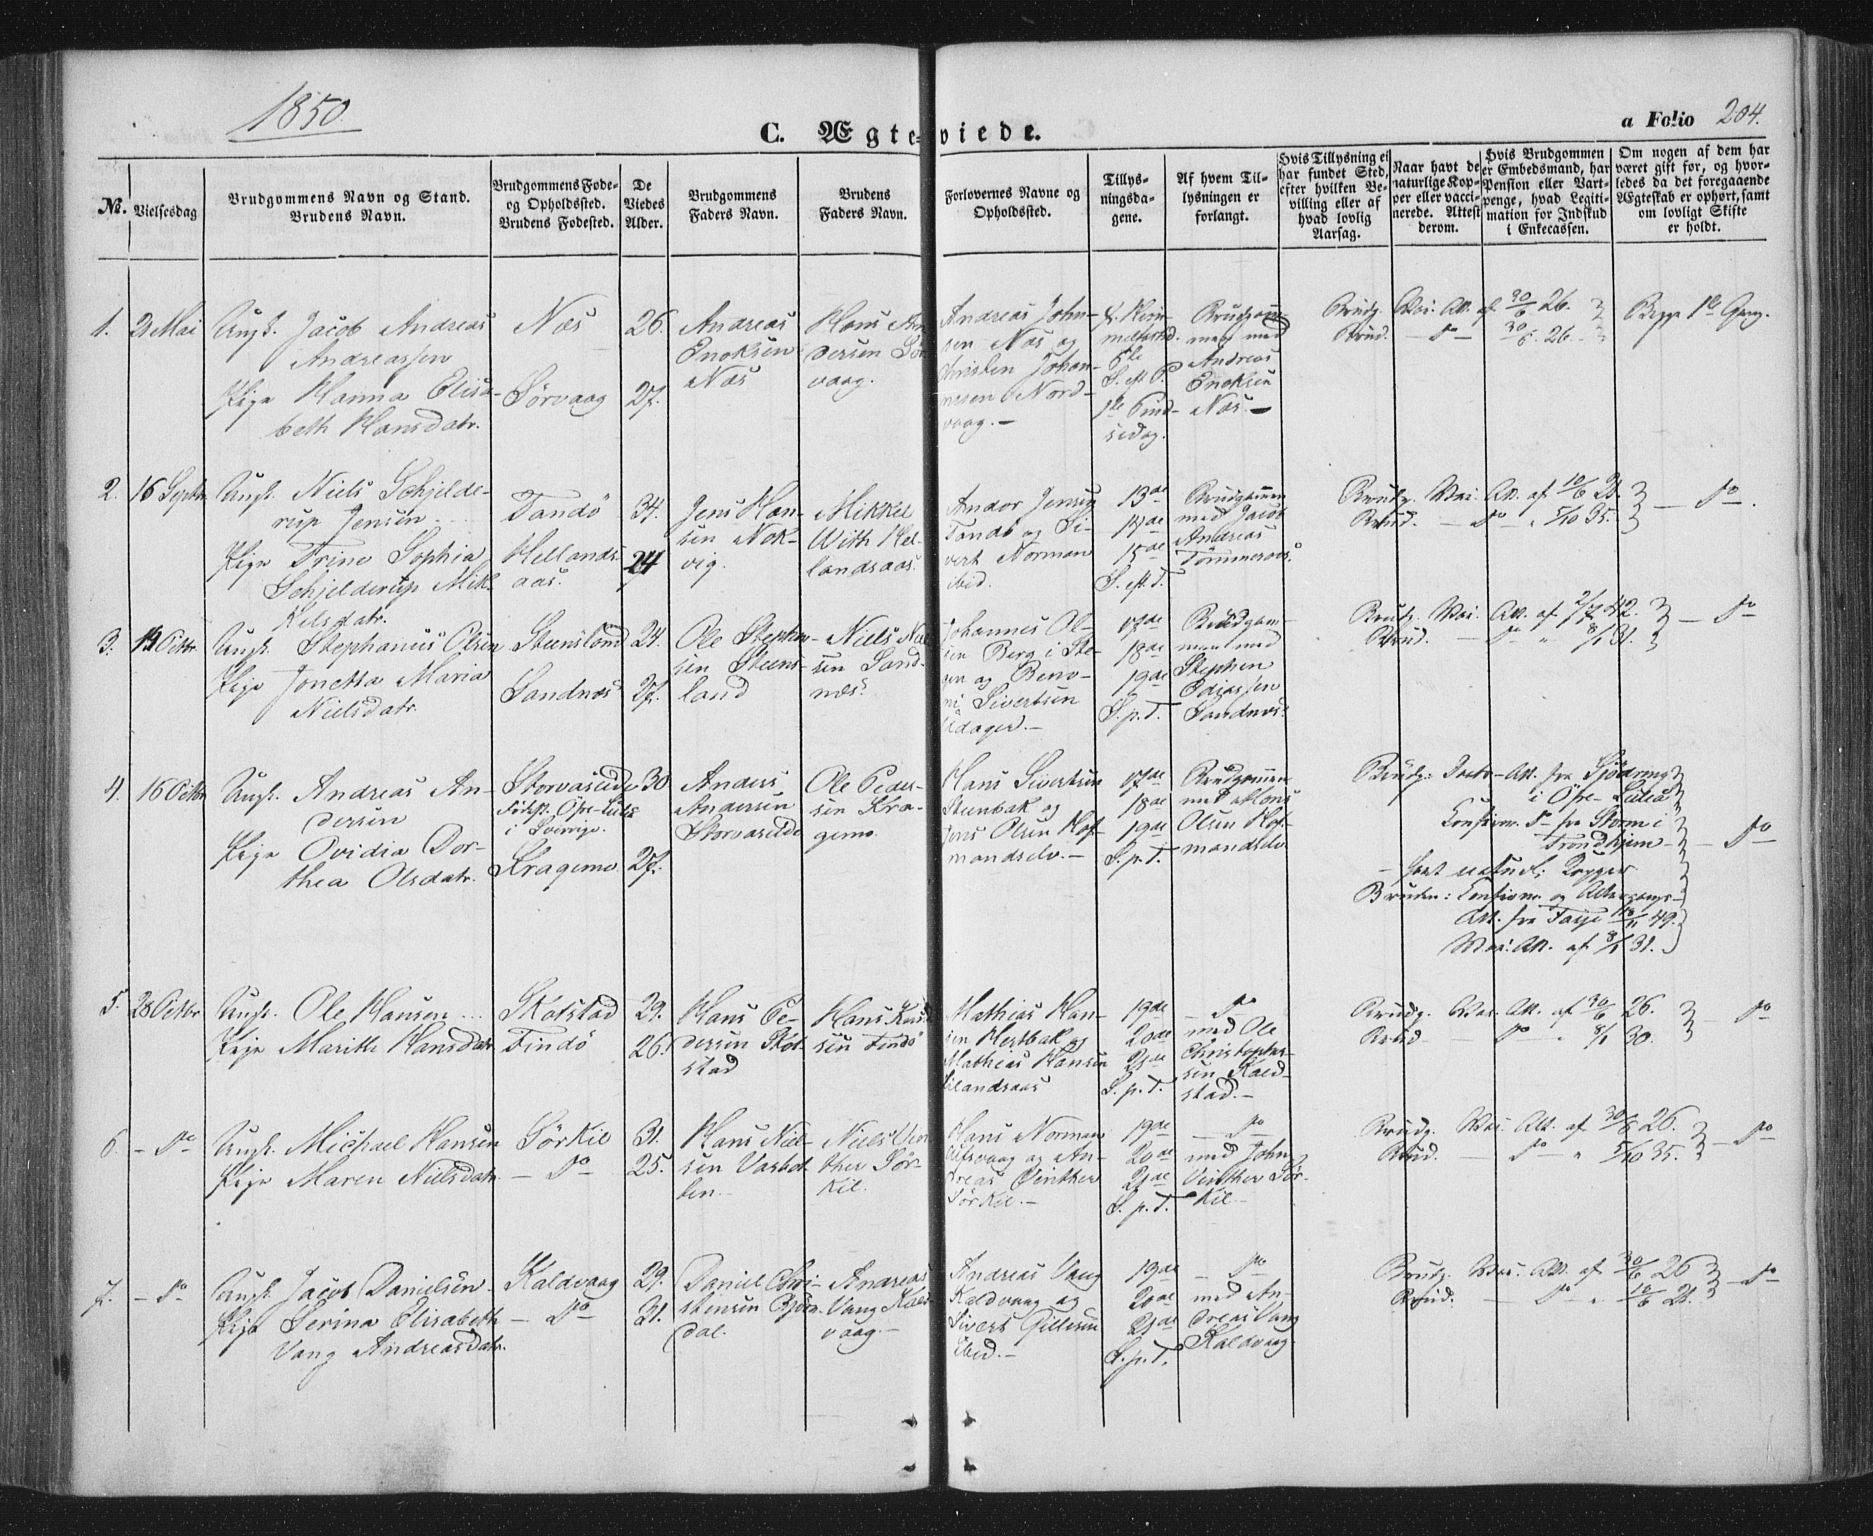 1850.
C. Ægteviede.
a Folio 204.
No.
Vielsesdag
Brudgommens Navn og Stand.
Brudens Navn.
Brudgommens Føde-
og Opholdssted.
Brudens Fødested.
De
Viedes
Alder.
Brudgommens
Faders Navn.
Brudens
Faders Navn.
Forlovernes Navne og
Opholdssted.
Tillys-
ningsda-
gene.
Af hvem Til-
lysningen er
forlangt.
Hvis Tillysning ei
har fundet Sted,
efter hvilken Be-
villing eller af
hvad lovlig
Aarsag.
Naar havt de
naturlige Kop-
per eller vacci-
nerede. Attest
derom.
Hvis Brudgommen
er Embedsmand, har
Pension eller Vart-
penge, hvad Legiti-
mation for Indskud
i Enkecassen.
Om nogen af dem har
været gift før, og hvor-
ledes da det foregaaende
Ægteskab er ophørt, samt
om lovligt Skifte
er holdt.
1. 21 Mai
Ungk. Jacob Andreas
Andreassen
Pige Hanna Elisa-
beth Hansdatr.
Næs
Sørvaag
26.
27.
Andreas
Enoksen
Næs
Hans An-
dersen Sør-
vaag.
Andreas John-
sen Næs og
Christen Johan-
nesen Nord-
vaag.
1ste Pind-
sedag.
Brudgom-
men med
Andreas
Enoksen
Næs.
Brudg. Vac. Att. af 30/6 26.
Brud. — do — 30/6 26.
Begge 1ste Gang.
2. 16 Septbr
Ungk. Niels Schjelde-
rup Jensen
Pige Trine Sophia
Schjelderup Mik-
kelsdatr.
Tandö
Hellands-
aas.
34.
24
Jens Han-
sen Nok-
vig.
Mikkel
With Hel-
landsaas.
Andor Jensen
Tandö og Si-
vert Norman
ibid.
13de
14de
15de
Brudgommen
med Jacob
Andreas
Tømmeraas.
Brudg. Vac. Att. af 10/6 21.
Brud. — do — 5/10 35.
— do —
3. 14 Octbr
Ungk. Stephanus Olsen
Pige Jonetta Maria
Nielsdatr.
Steensland
Sandnæs
24.
27.
Ole Stephen-
sen Steens-
land
Niels Niel-
sen Sand-
næs.
Johannes Ol-
sen Berg i Ste-
gen og Beno-
ni Sivertsen
Udager.
17de
18de
19de
S. p. T.
Brudgom-
men med
Stephen
Ediassen
Sandnæs.
Brudg. Vac. Att. af 2/7 42.
Brud. — do — 8/1 31.
— do
4. 16 Octbr
Ungk. Andreas An-
dersen
Pige Ovidia Dor-
thea Olsdatr.
Storvaselde
i Sverrige.
Kragemo.
30
27.
Anders
Andersen
Storvaselde
Ole Peder-
sen Kra-
gemo.
Hans Sivertsen
Steenbak og
Jens Olsen Hof-
mandselv.
17de
18de
19de
S. p. T.
Brudgommen
med Mons
Olsen Hof-
mandselv
Brudg: Daabs-Att. fra Sjöaring
i Öfre-Luleå
Confirm. do fra Storm i
Trondhjem
— havt naturl. Kopper
Bruden: Confirm. og Altergangs-
Att. fra Tarje 49.
Vac. Att. af 8/1 31.
— do
5. 28 Octbr
Ungk. Ole Hansen
Pige Marith Hansdatr
Skotstad
Findö
29.
26.
Hans Pe-
dersen Skot-
stad
Hans Knud-
sen Findö
Mathias Han-
sen Hestbak og
Mathias Hansen
19de
20de
21de
S. p. T.
— do
med Ole
Christopher-
sen Kald-
stad.
Brudg. Vac. Att. af 30/6 26.
Brud — do — 8/1 30.
— do
6. — do
Ungk. Michael Hansen
Pige Maren Nielsdatr.
Sörkil
— do —
31.
25.
Hans Niel-
sen Vasbot-
ten.
Niels Vin-
ther Sör-
kil.
Hans Norman
og An-
dreas Vinther
Sörkil.
19de
20de
21de
S. p. T.
— do
med John
Vinther Sör-
kil
Brudg. Vac. Att. af 30/6 26.
Brud. — do — 5/10 35.
— do
7. — do
Ungk. Jacob Danielsen
Pige Serina Elisabeth
Vang Andreasdatr.
Kaldvaag
— do —
29.
31.
Daniel Chri-
stensen Bjørn-
dal.
Andreas
Vang Kald-
vaag.
Andreas Vang
Kaldvaag og
Sivert Gillesen
ibid.
19de
20de
21de
S. p. T.
— do
med An-
dreas Vang
Kaldvaag.
Brudg. Vac. Att. af 30/6 26
Brud. — do — 10/6 21.
— do